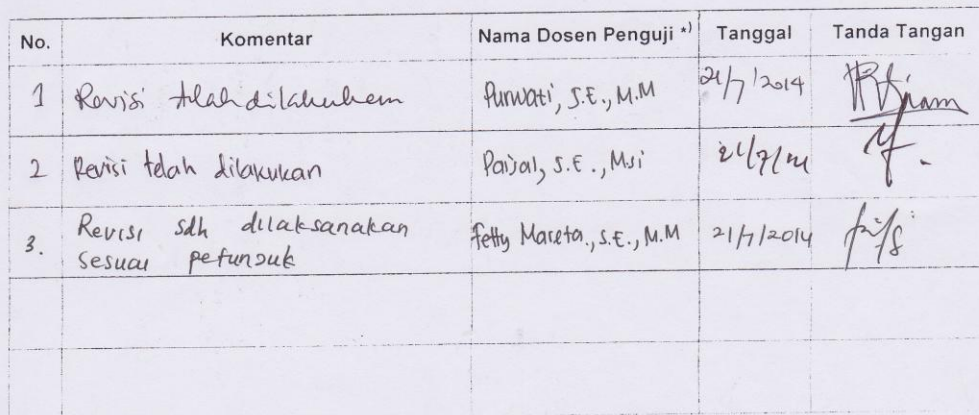 No. Komentar Nama Dosen Penguji *) Tanggal Tanda Tangan
1 Revisi telah dilakukan Purwati, S.E., M.M 21/7/2014
2 Revisi telah dilakukan Paisal, S.E., M.si 21/7/14
3. Revisi sdh dilaksanakan Fetty Mareta., S.E., M.M 21/7/2014
sesuai petunjuk